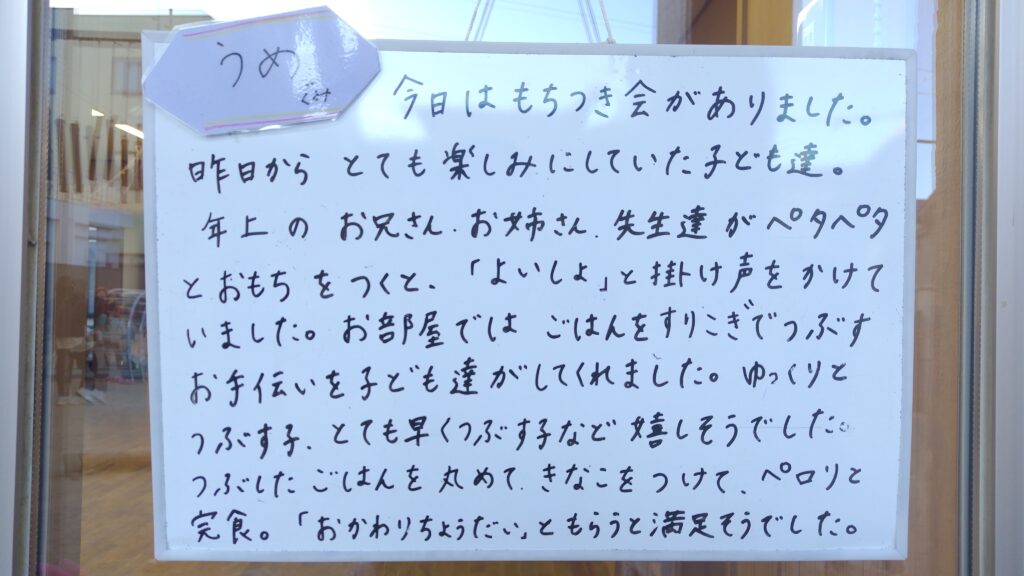 うめ
ぐみ
今日はもちつき会がありました。
昨日から とても楽しみにしていた子ども達。
年上の お兄さん、お姉さん、先生達がペタペタ
とおもちをつくと、「よいしょ」と掛け声をかけて
いました。お部屋では ごはんをすりこぎでつぶす
お手伝いを子ども達がしてくれました。ゆっくりと
つぶす子、とても早くつぶす子など嬉しそうでした。
つぶしたごはんを丸めて、きなこをつけて、ペロリと
完食。「おかわりちょうだい」ともらうと満足そうでした。